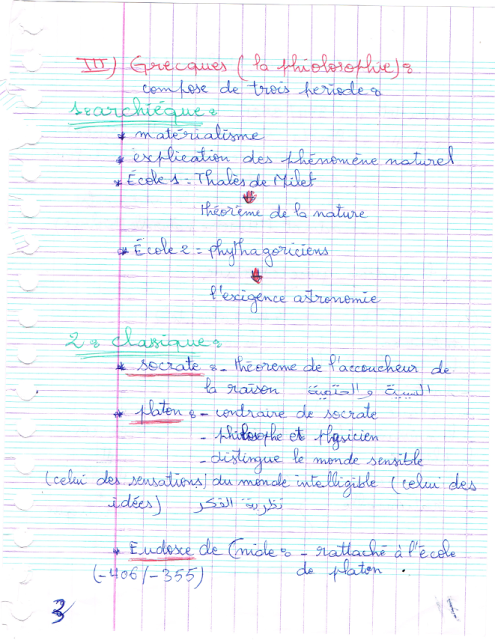 III) Grecques ( la phiolosophie):
compose de trois periode:
1: archiéque:
* matérialisme
* explication des phénomène naturel
* École 1 = Thalès de Milet
théorème de la nature
* École 2 = phythagoriciens
l'exigence astronomie
2: classique:
* socrate: - théoreme de l'accoucheur de
la raison السببية و الحتمية
* platon: - contraire de socrate
- philosophe et physicien
- distingue le monde sensible
(celui des sensations) du monde intelligible (celui des
idées) نظرية الفكر
* Eudoxe de Cnide: - rattaché à l'école
(-406/-355) de platon .
3